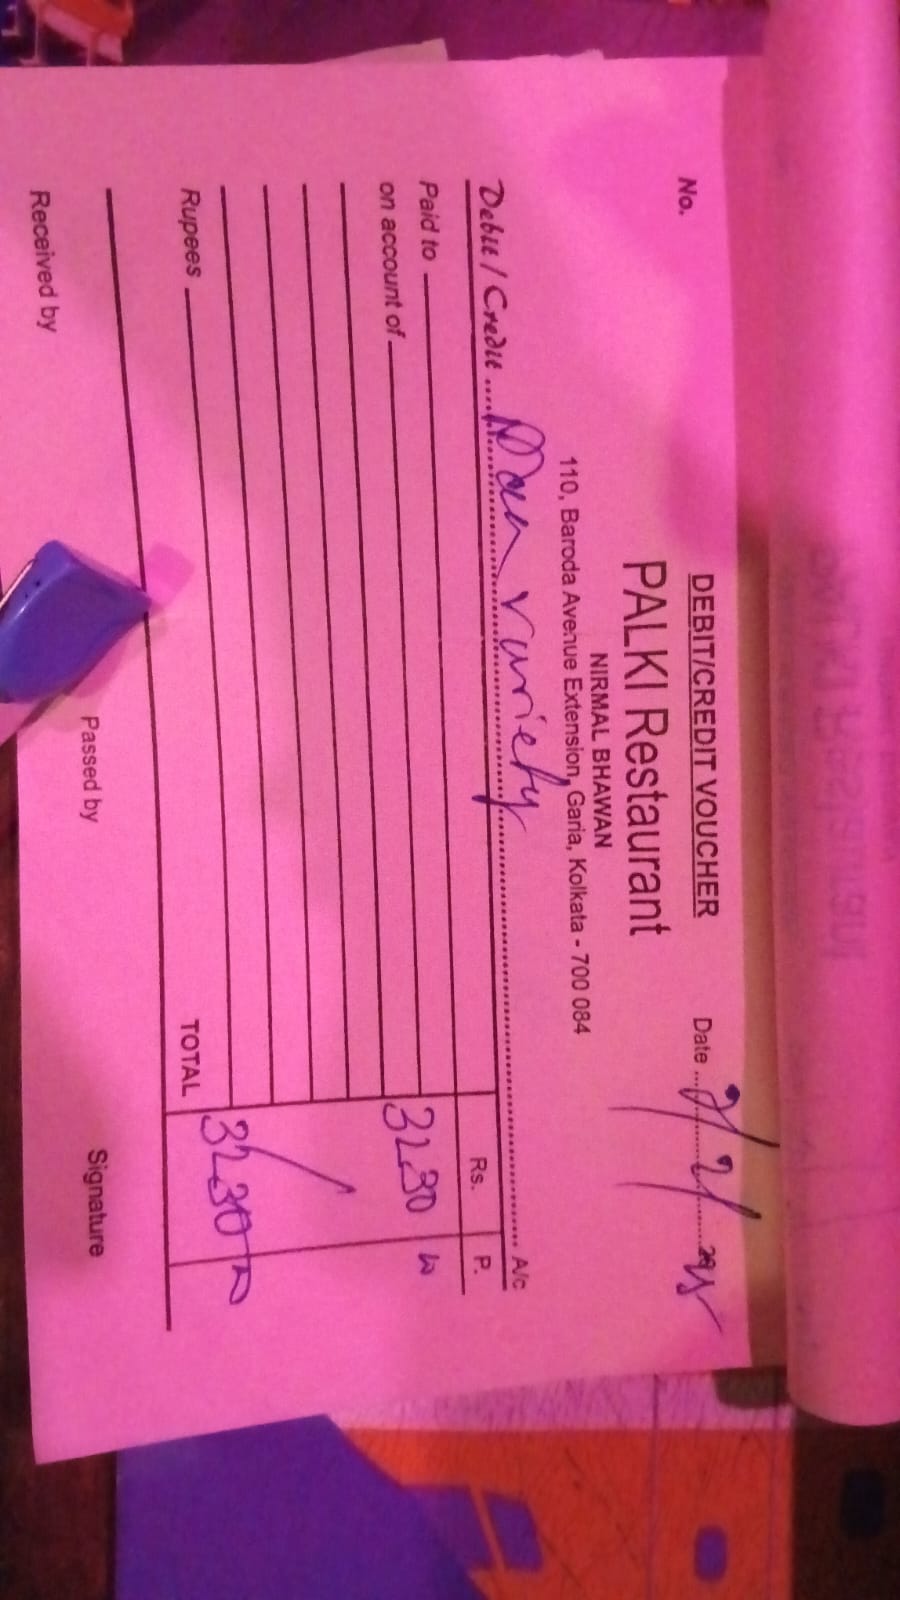 DEBIT/CREDIT VOUCHER
No.
Date
PALKI Restaurant
NIRMAL BHAWAN
110, Baroda Avenue Extension, Garia, Kolkata - 700 084
Debit / Credit variety A/c
Rs. P.
Paid to 3230
on account of
Rupees TOTAL 3230
Received by Passed by Signature